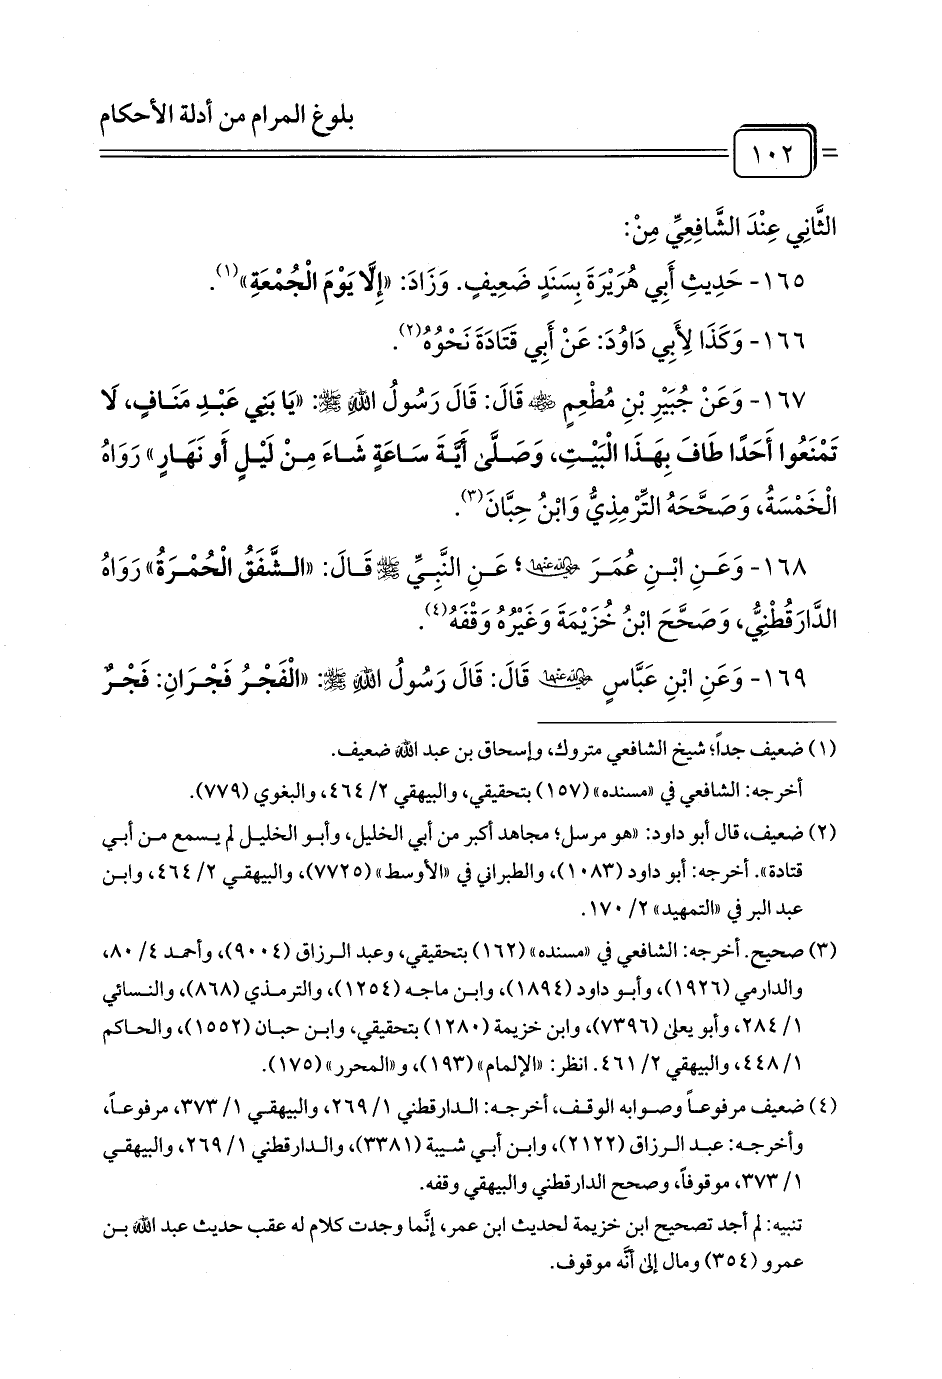 بلوغ المرام من أدلة الأحكام
١٠٢
الثَّانِي عِنْدَ الشَّافِعِيِّ مِنْ:
١٦٥- حَدِيثِ أَبِي هُرَيْرَةَ بِسَنَدٍ ضَعِيفٍ. وَزَادَ: «إِلَّا يَوْمَ الْجُمْعَةِ»(١).
١٦٦- وَكَذَا لِأَبِي دَاوُدَ: عَنْ أَبِي قَتَادَةَ نَحْوُهُ(٢).
١٦٧- وَعَنْ جُبَيْرِ بْنِ مُطْعِمٍ ﵁ قَالَ: قَالَ رَسُولُ اللهِ ﷺ: «يَا بَنِي عَبْدِ مَنَافٍ، لَا
تَمْنَعُوا أَحَدًا طَافَ بِهَذَا الْبَيْتِ، وَصَلَّى أَيَّةَ سَاعَةٍ شَاءَ مِنْ لَيْلٍ أَو نَهَارٍ» رَوَاهُ
الْخَمْسَةُ، وَصَحَّحَهُ التِّرْمِذِيُّ وَابْنُ حِبَّانَ(٣).
١٦٨- وَعَنِ ابْنِ عُمَرَ ﵄؛ عَنِ النَّبِيِّ ﷺ قَالَ: «الشَّفَقُ الْحُمْرَةُ» رَوَاهُ
الدَّارَقُطْنِيُّ، وَصَحَّحَ ابْنُ خُزَيْمَةَ وَغَيْرُهُ وَقْفَهُ(٤).
١٦٩- وَعَنِ ابْنِ عَبَّاسٍ ﵄ قَالَ: قَالَ رَسُولُ اللهِ ﷺ: «الْفَجْرُ فَجْرَانِ: فَجْرٌ
(١) ضعيف جداً؛ شيخ الشافعي متروك، وإسحاق بن عبد الله ضعيف.
أخرجه: الشافعي في «مسنده» (١٥٧) بتحقيقي، والبيهقي ٢/ ٤٦٤، والبغوي (٧٧٩).
(٢) ضعيف، قال أبو داود: «هو مرسل؛ مجاهد أكبر من أبي الخليل، وأبو الخليل لم يسمع من أبي
قتادة». أخرجه: أبو داود (١٠٨٣)، والطبراني في «الأوسط» (٧٧٢٥)، والبيهقي ٢/ ٤٦٤، وابن
عبد البر في «التمهيد» ٢/ ١٧٠.
(٣) صحيح. أخرجه: الشافعي في «مسنده» (١٦٢) بتحقيقي، وعبد الرزاق (٩٠٠٤)، وأحمد ٤/ ٨٠،
والدارمي (١٩٢٦)، وأبو داود (١٨٩٤)، وابن ماجه (١٢٥٤)، والترمذي (٨٦٨)، والنسائي
١/ ٢٨٤، وأبو يعلى (٧٣٩٦)، وابن خزيمة (١٢٨٠) بتحقيقي، وابن حبان (١٥٥٢)، والحاكم
١/ ٤٤٨، والبيهقي ٢/ ٤٦١. انظر: «الإلمام» (١٩٣)، و«المحرر» (١٧٥).
(٤) ضعيف مرفوعاً وصوابه الوقف، أخرجه: الدارقطني ١/ ٢٦٩، والبيهقي ١/ ٣٧٣، مرفوعاً،
وأخرجه: عبد الرزاق (٢١٢٢)، وابن أبي شيبة (٣٣٨١)، والدارقطني ١/ ٢٦٩، والبيهقي
١/ ٣٧٣، موقوفاً، وصحح الدارقطني والبيهقي وقفه.
تنبيه: لم أجد تصحيح ابن خزيمة لحديث ابن عمر، إنَّما وجدت كلام له عقب حديث عبد الله بن
عمرو (٣٥٤) ومال إلى أنَّه موقوف.